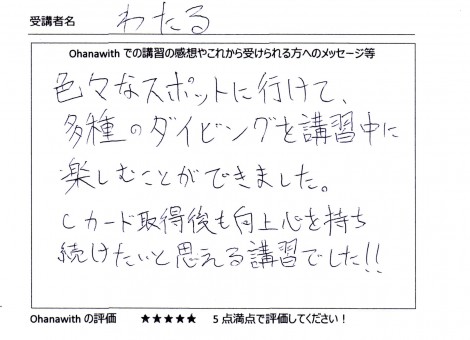 受講者名 わたる
Ohanawith での講習の感想やこれから受けられる方へのメッセージ等
色々なスポットに行けて、
多種のダイビングを講習中に
楽しむことができました。
Cカード取得後も向上心を持ち
続けたいと思える講習でした!!
Ohanawith の評価 ★★★★★ 5点満点で評価してください！